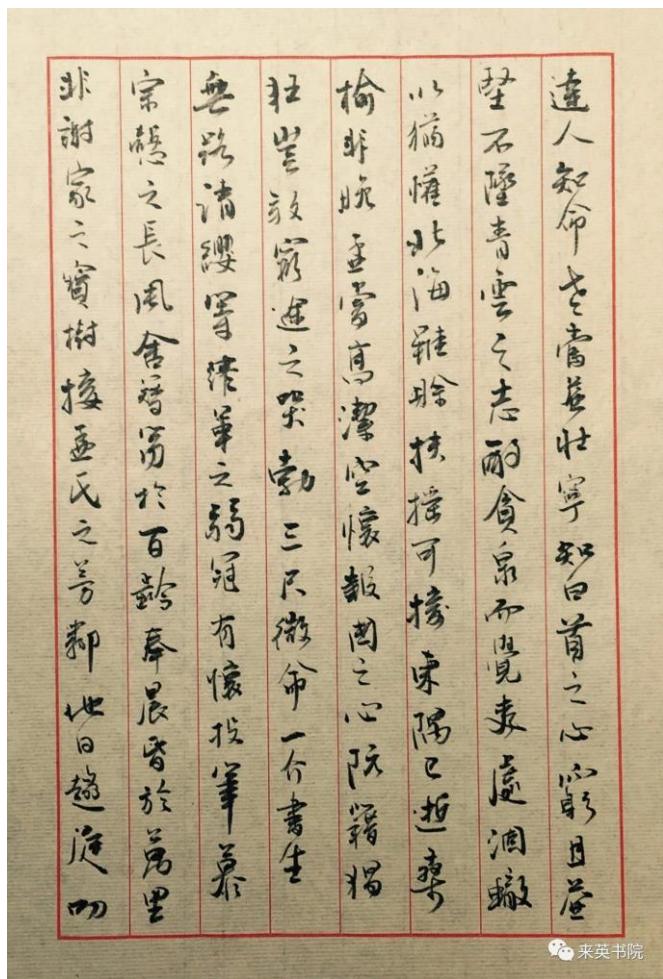 達人知命老當益壯寧知白首之心窮且益
堅不墜青雲之志酌貪泉而覺爽處涸轍
以猶懽北海雖賒扶搖可接東隅已逝桑
榆非晚孟嘗高潔空懷報國之心阮籍猖
狂豈效窮途之哭勃三尺微命一介書生
無路請纓等終軍之弱冠有懷投筆慕
宗愨之長風舍簪笏於百齡奉晨昏於萬里
非謝家之寶樹接孟氏之芳鄰他日趨庭叨
来英书院